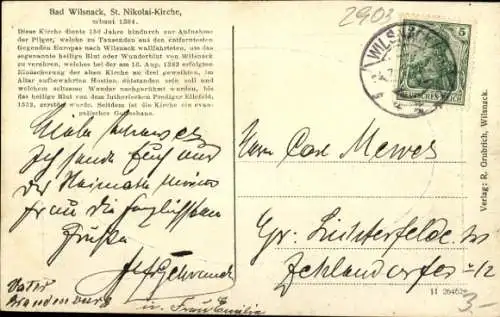 2903
Bad Wilsnack, St. Nikolai-Kirche,
erbaut 1384.
Diese Kirche diente 150 Jahre hindurch zur Aufnahme
der Pilger, welche zu Tausenden aus den entferntesten
Gegenden Europas nach Wilsnack wallfahrteten, um das
sogenannte heilige Blut oder Wunderblut von Wilsnack
zu verehren, welches bei der am 16. Aug. 1383 erfolgten
Einäscherung der alten Kirche an drei geweihten, im
Altar aufbewahrten Hostien, entstanden sein soll und
welchem seltsame Wunder nachgerühmt wurden, bis
das heilige Blut von dem lutherischen Prediger Ellefeld,
1552, zerstört wurde. Seitdem ist die Kirche ein evan-
gelisches Gotteshaus.
WILSNACK
5
DEUTSCHES REICH
Ich sende Euch aus
der Heimath meiner
Frau die herzlichsten
Grüße
Vater
Brandenburg
u. Frau
Herrn Carl Mewes
Gr. Lichterfelde W
Zehlendorferstr 12
Verlag: R. Grubrich, Wilsnack.
3-